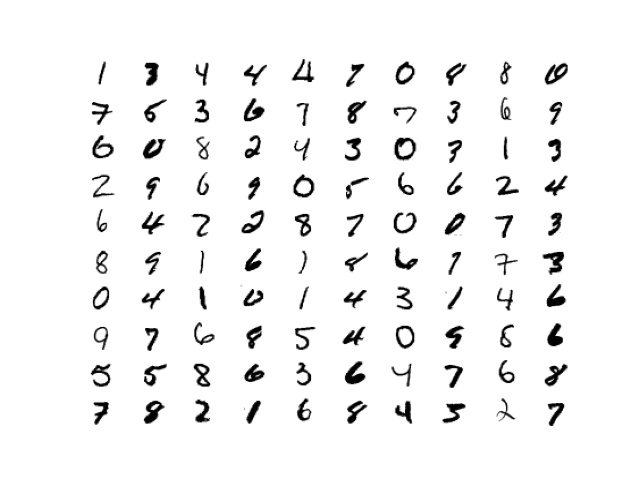 1 3 4 4 4 7 0 8 8 0
7 5 3 6 7 8 7 3 6 9
6 0 8 2 4 3 0 3 1 3
2 9 6 9 0 5 6 6 2 4
6 4 7 2 8 7 0 0 7 3
8 9 1 6 1 8 6 1 7 3
0 4 1 0 1 4 3 1 4 6
9 7 6 8 5 4 0 9 8 6
5 5 8 6 3 6 4 7 6 8
7 8 2 1 6 8 4 5 2 7